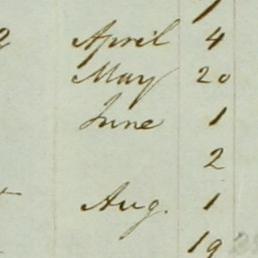 April 4
May 20
June 1
2
Aug. 1
19